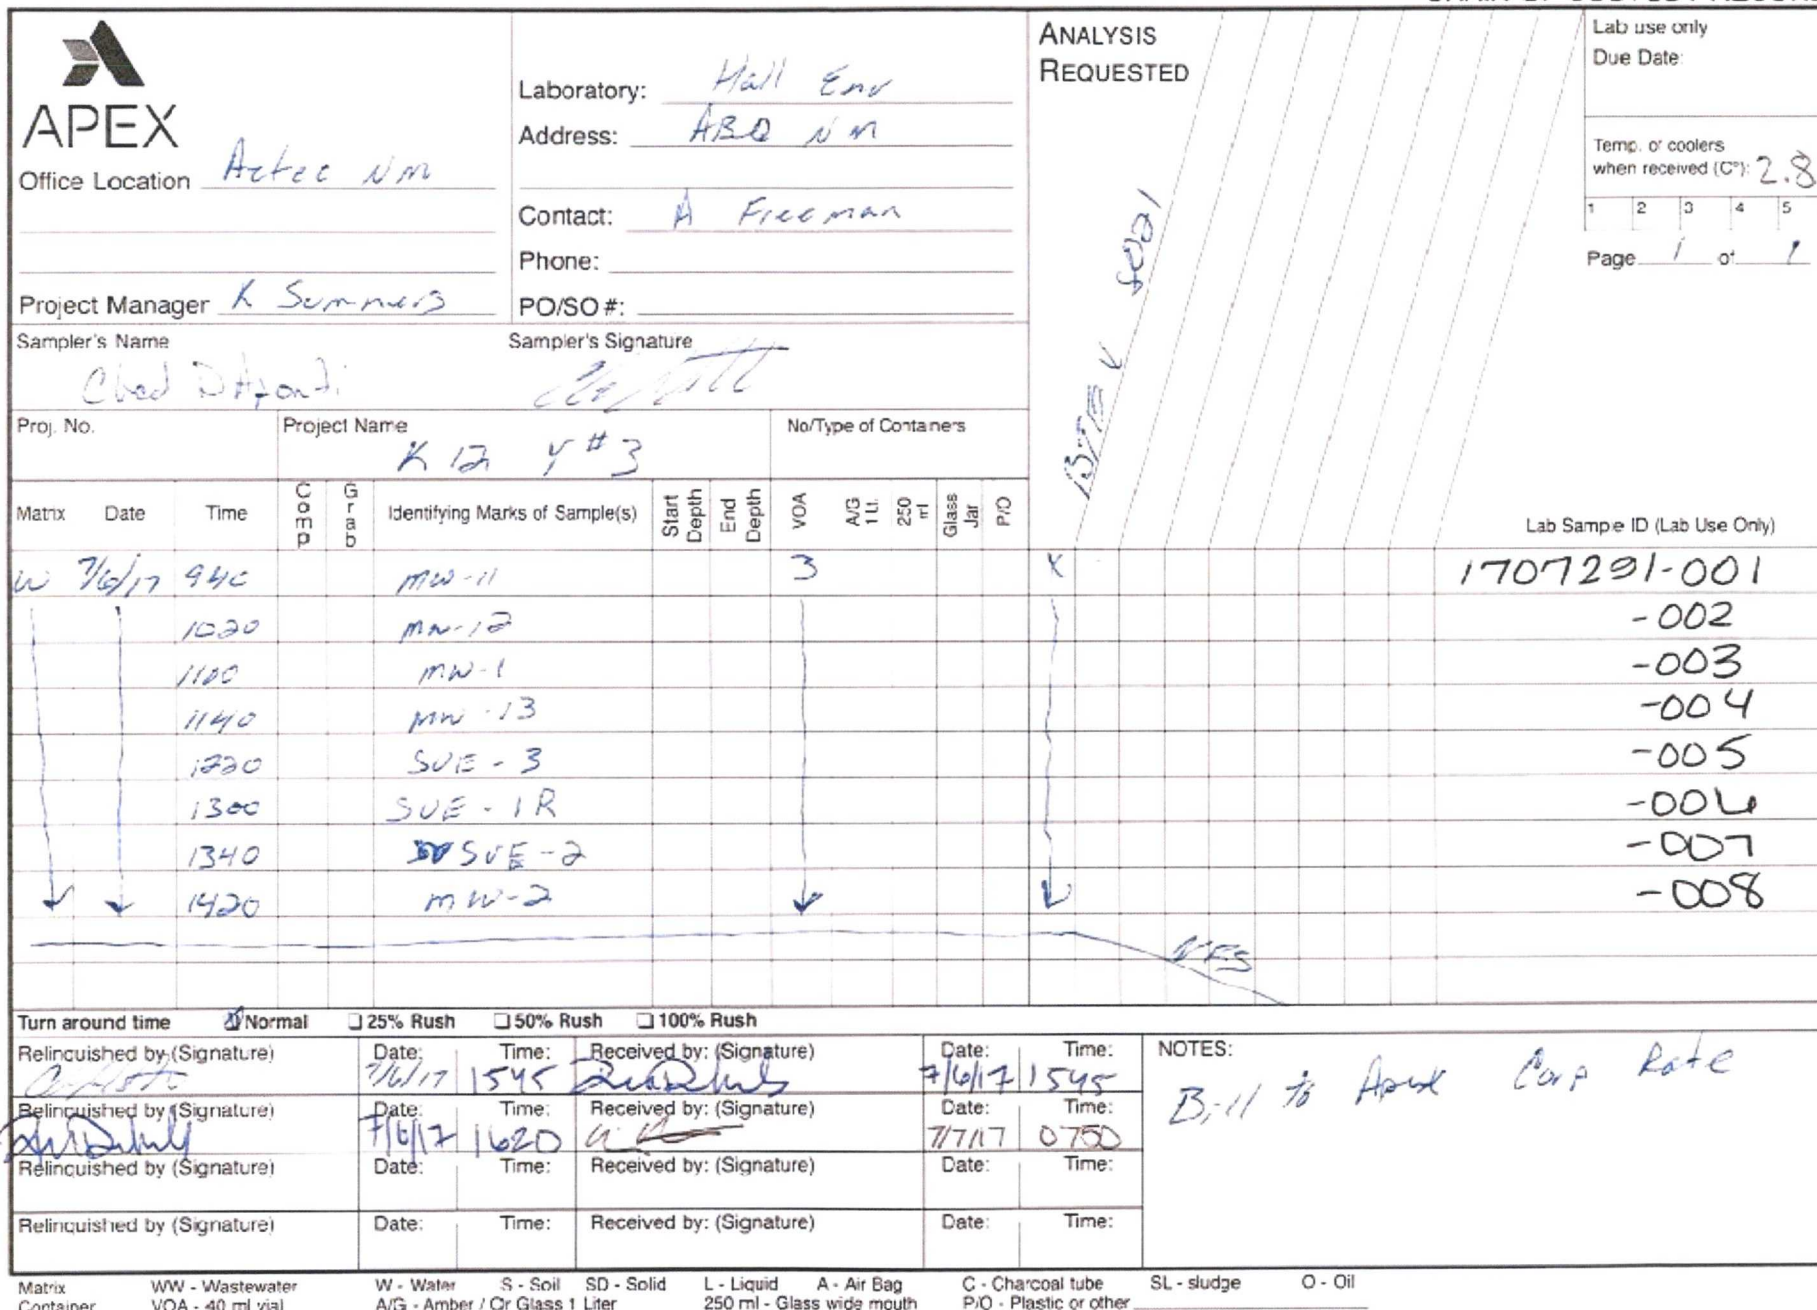 APEX
Office Location Aztec NM
Project Manager K Summers
Laboratory: Hall Env
Address: ABQ NM
Contact: A Freeman
Phone:
PO/SO #:
ANALYSIS
REQUESTED
BTEX 8021
Lab use only
Due Date:
Temp. of coolers
when received (C°): 2.8
1 2 3 4 5
Page 1 of 1
Sampler's Name
Chad
Sampler's Signature
Proj. No.
Project Name
K 12 Y #3
No/Type of Containers
Matrix Date Time Comp Grab Identifying Marks of Sample(s) Start Depth End Depth VOA A/G 1 Lt. 250 ml Glass Jar P/O Lab Sample ID (Lab Use Only)
W 7/6/17 940 MW-11 3 X 1707291-001
1020 MW-12 -002
1100 MW-1 -003
1140 MW-13 -004
1220 SVE-3 -005
1300 SVE-1R -006
1340 SVE-2 -007
1420 MW-2 -008
NFS
Turn around time Normal 25% Rush 50% Rush 100% Rush
Relinquished by (Signature) Date: 7/6/17 Time: 1545 Received by: (Signature) Date: 7/6/17 Time: 1545
Relinquished by (Signature) Date: 7/6/17 Time: 1620 Received by: (Signature) Date: 7/7/17 Time: 0750
Relinquished by (Signature) Date: Time: Received by: (Signature) Date: Time:
Relinquished by (Signature) Date: Time: Received by: (Signature) Date: Time:
NOTES:
Bill to Apex Corp Rate
Matrix WW - Wastewater W - Water S - Soil SD - Solid L - Liquid A - Air Bag C - Charcoal tube SL - sludge O - Oil
Container VOA - 40 ml vial A/G - Amber / Or Glass 1 Liter 250 ml - Glass wide mouth P/O - Plastic or other